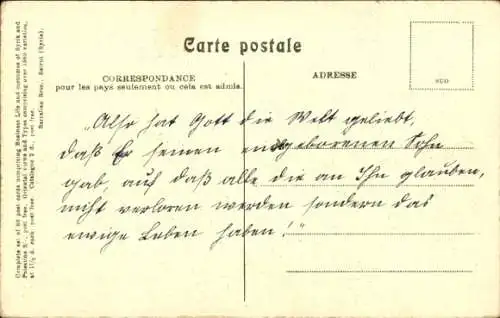 Carte postale
CORRESPONDANCE
pour les pays seulement ou cela est admis.
ADRESSE
„Also hat Gott die Welt geliebt,
daß Er seinen eingeborenen Sohn
gab, auf daß alle die an Ihn glauben,
nicht verloren werden sondern das
ewige Leben haben!"
Complete set of 50 post cards comprising Eastern Life and costumes of Syria and
Palestine post free. Oriental views and Types comprising over 1500 varieties,
at 1½ d. each post free. Catalogue 2 d., post free.
Sarrafian Bros., Beirut (Syria).